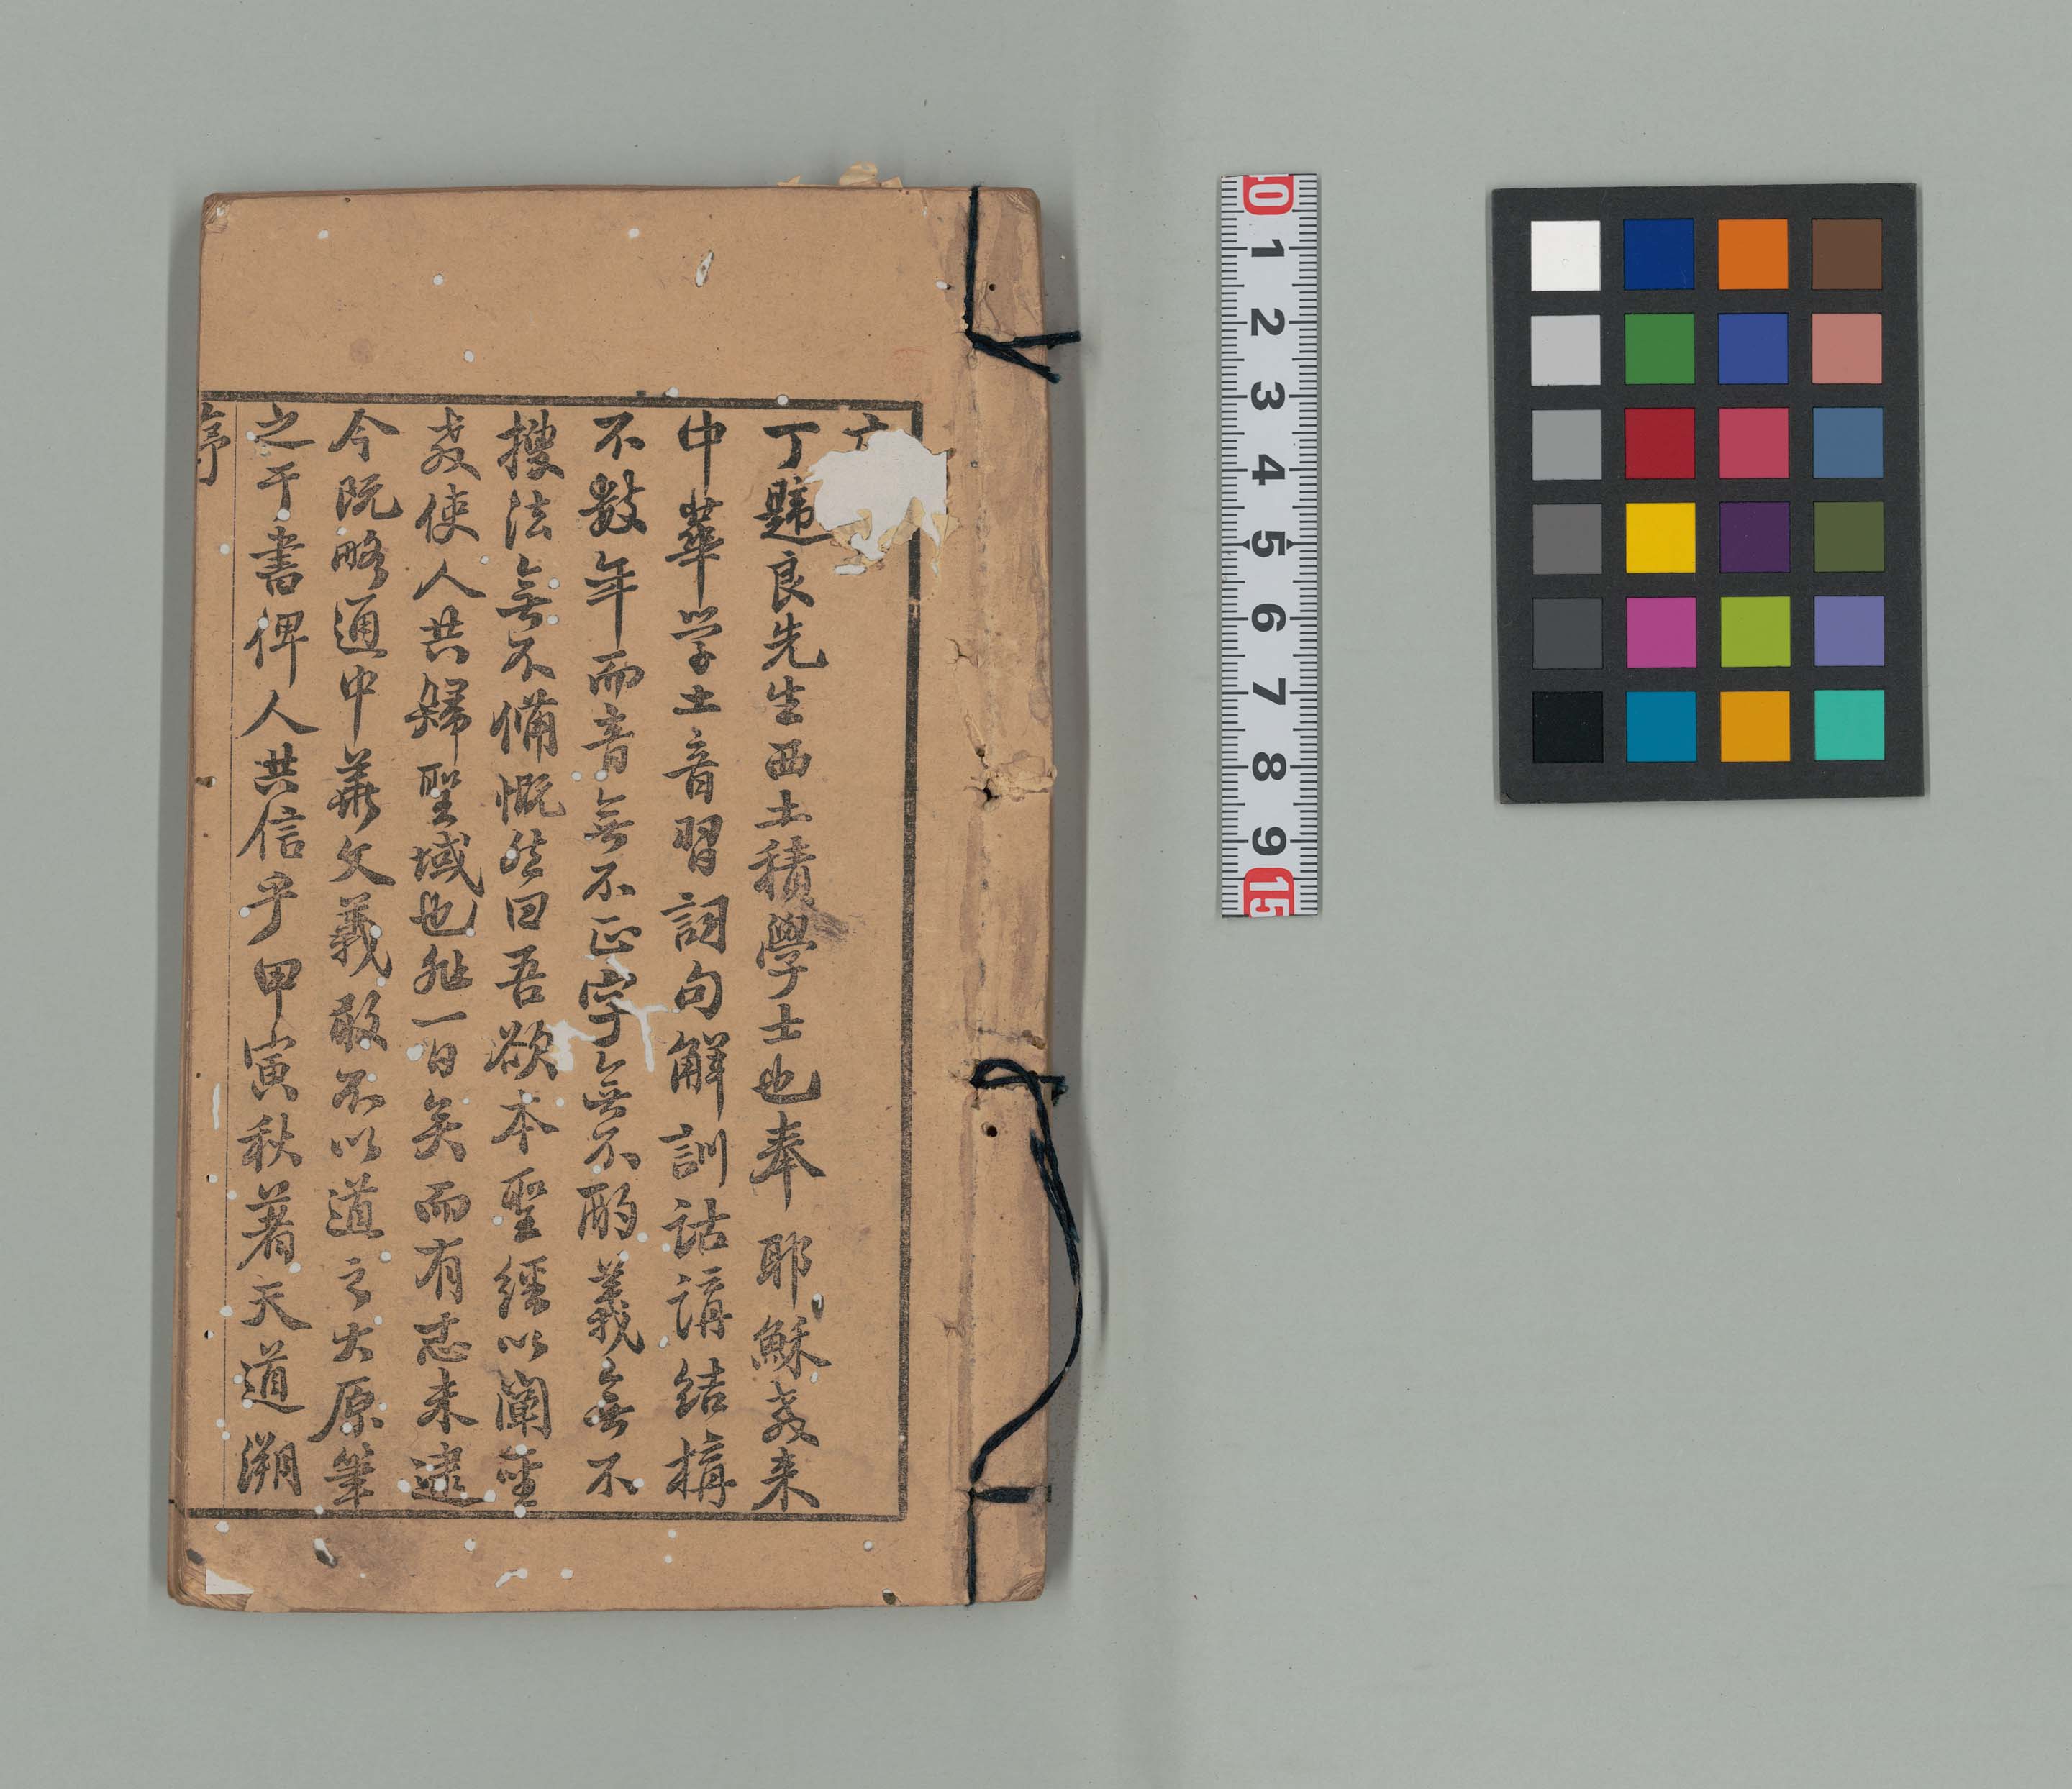 丁韙良先生西土積學士也奉耶穌教来
中華学土音習詞句解訓詁講结構
不数年而音無不正字無不酌義無不
搜法無不備慨然曰吾欲本聖經以闡聖
教使人共歸聖域也非一日矣而有志未逮
今既略通中華文義敢不以道之大原筆
之于書俾人共信乎甲寅秋著天道溯
0 1 2 3 4 5 6 7 8 9 15